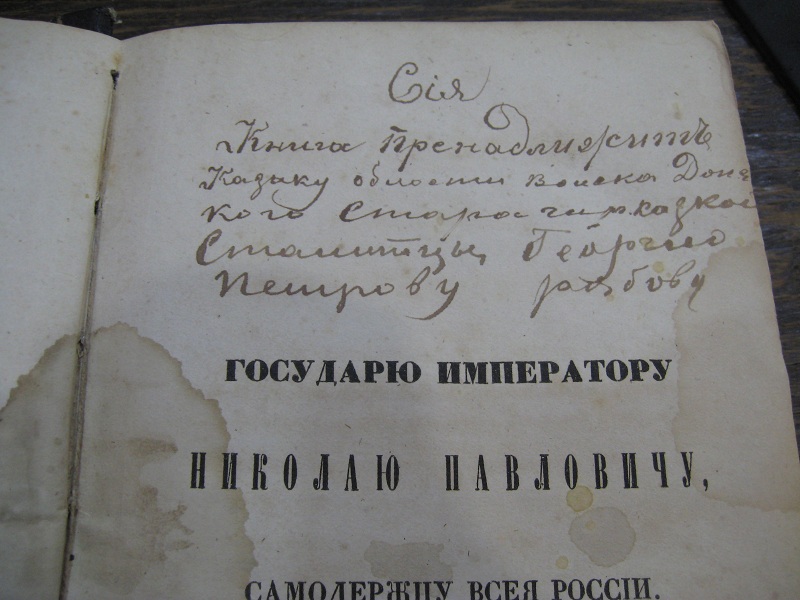 Сія
Книга пренадлижитъ
Казаку области войска Донс
кого Старочирказкой
Станитцы, Георгию
Петрову рябову
ГОСУДАРЮ ИМПЕРАТОРУ
НИКОЛАЮ ПАВЛОВИЧУ,
САМОДЕРЖЦУ ВСЕЯ РОССІИ.